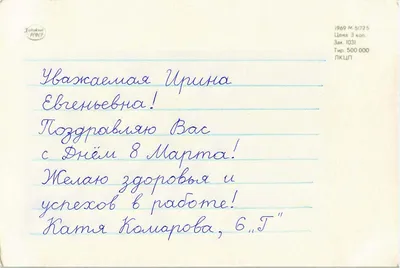 1969 РК 5/73 б
Цена 3 коп.
Зак. 1031
Тир. 500 000
ЛКЦП
Уважаемая Ирина
Евгеньевна!
Поздравляю Вас
с Днём 8 Марта!
Желаю здоровья и
успехов в работе!
Катя Комарова, 6 „Г"